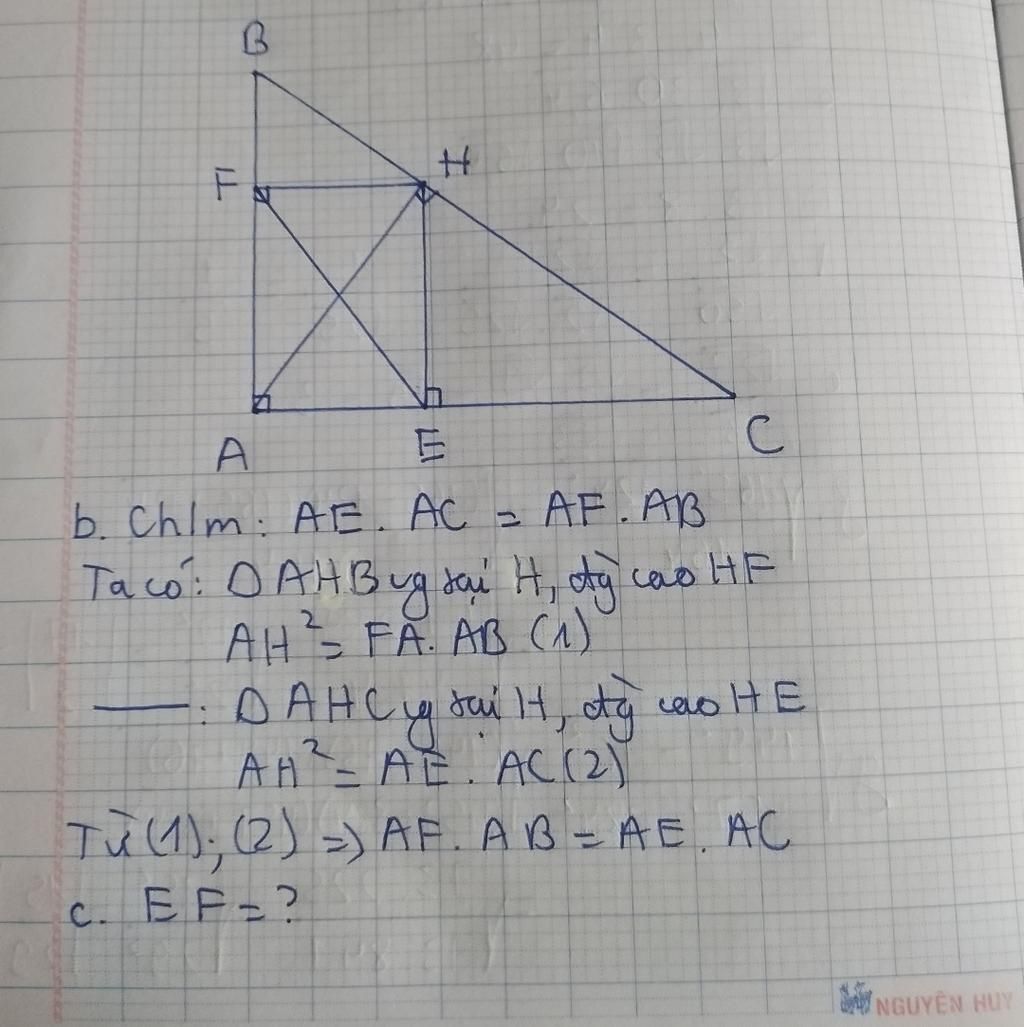 B
F
H
A
E
C
b. Ch/m: AE. AC = AF. AB
Ta có: Δ AHB vg tại H, đg cao HF
AH² = FA. AB (1)
——: Δ AHC vg tại H, đg cao HE
AH² = AE. AC (2)
Từ (1); (2) => AF. AB = AE. AC
c. EF = ?
NGUYÊN HUY